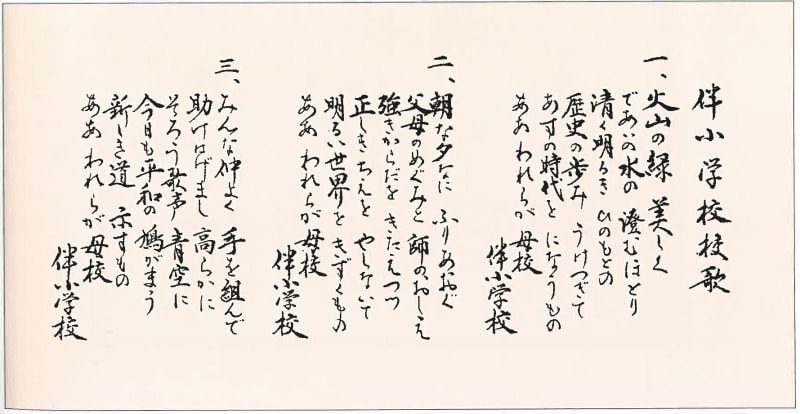 伴小学校校歌
一、火山の緑 美しく
であいの水の 澄むほとり
清く明るき ひのもとの
歴史の歩み うけつぎて
あすの時代を になうもの
ああ われらが 母校
伴小学校
二、朝な夕なに ふりあおぐ
父母のめぐみと 師のおしえ
強きからだを きたえつつ
正しきちえを やしないて
明るい世界を きずくもの
ああ われらが 母校
伴小学校
三、みんな仲よく 手を組んで
助けはげまし 高らかに
そろう歌声 青空に
今日も平和の 鳩がまう
新しき道 示すもの
ああ われらが 母校
伴小学校